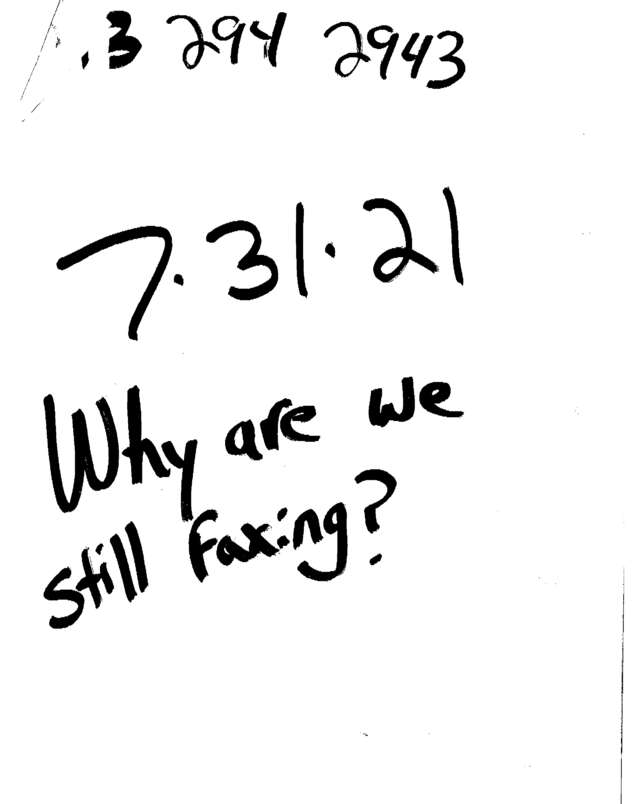 .3 294 2943
7.31.21
Why are we
still faxing?